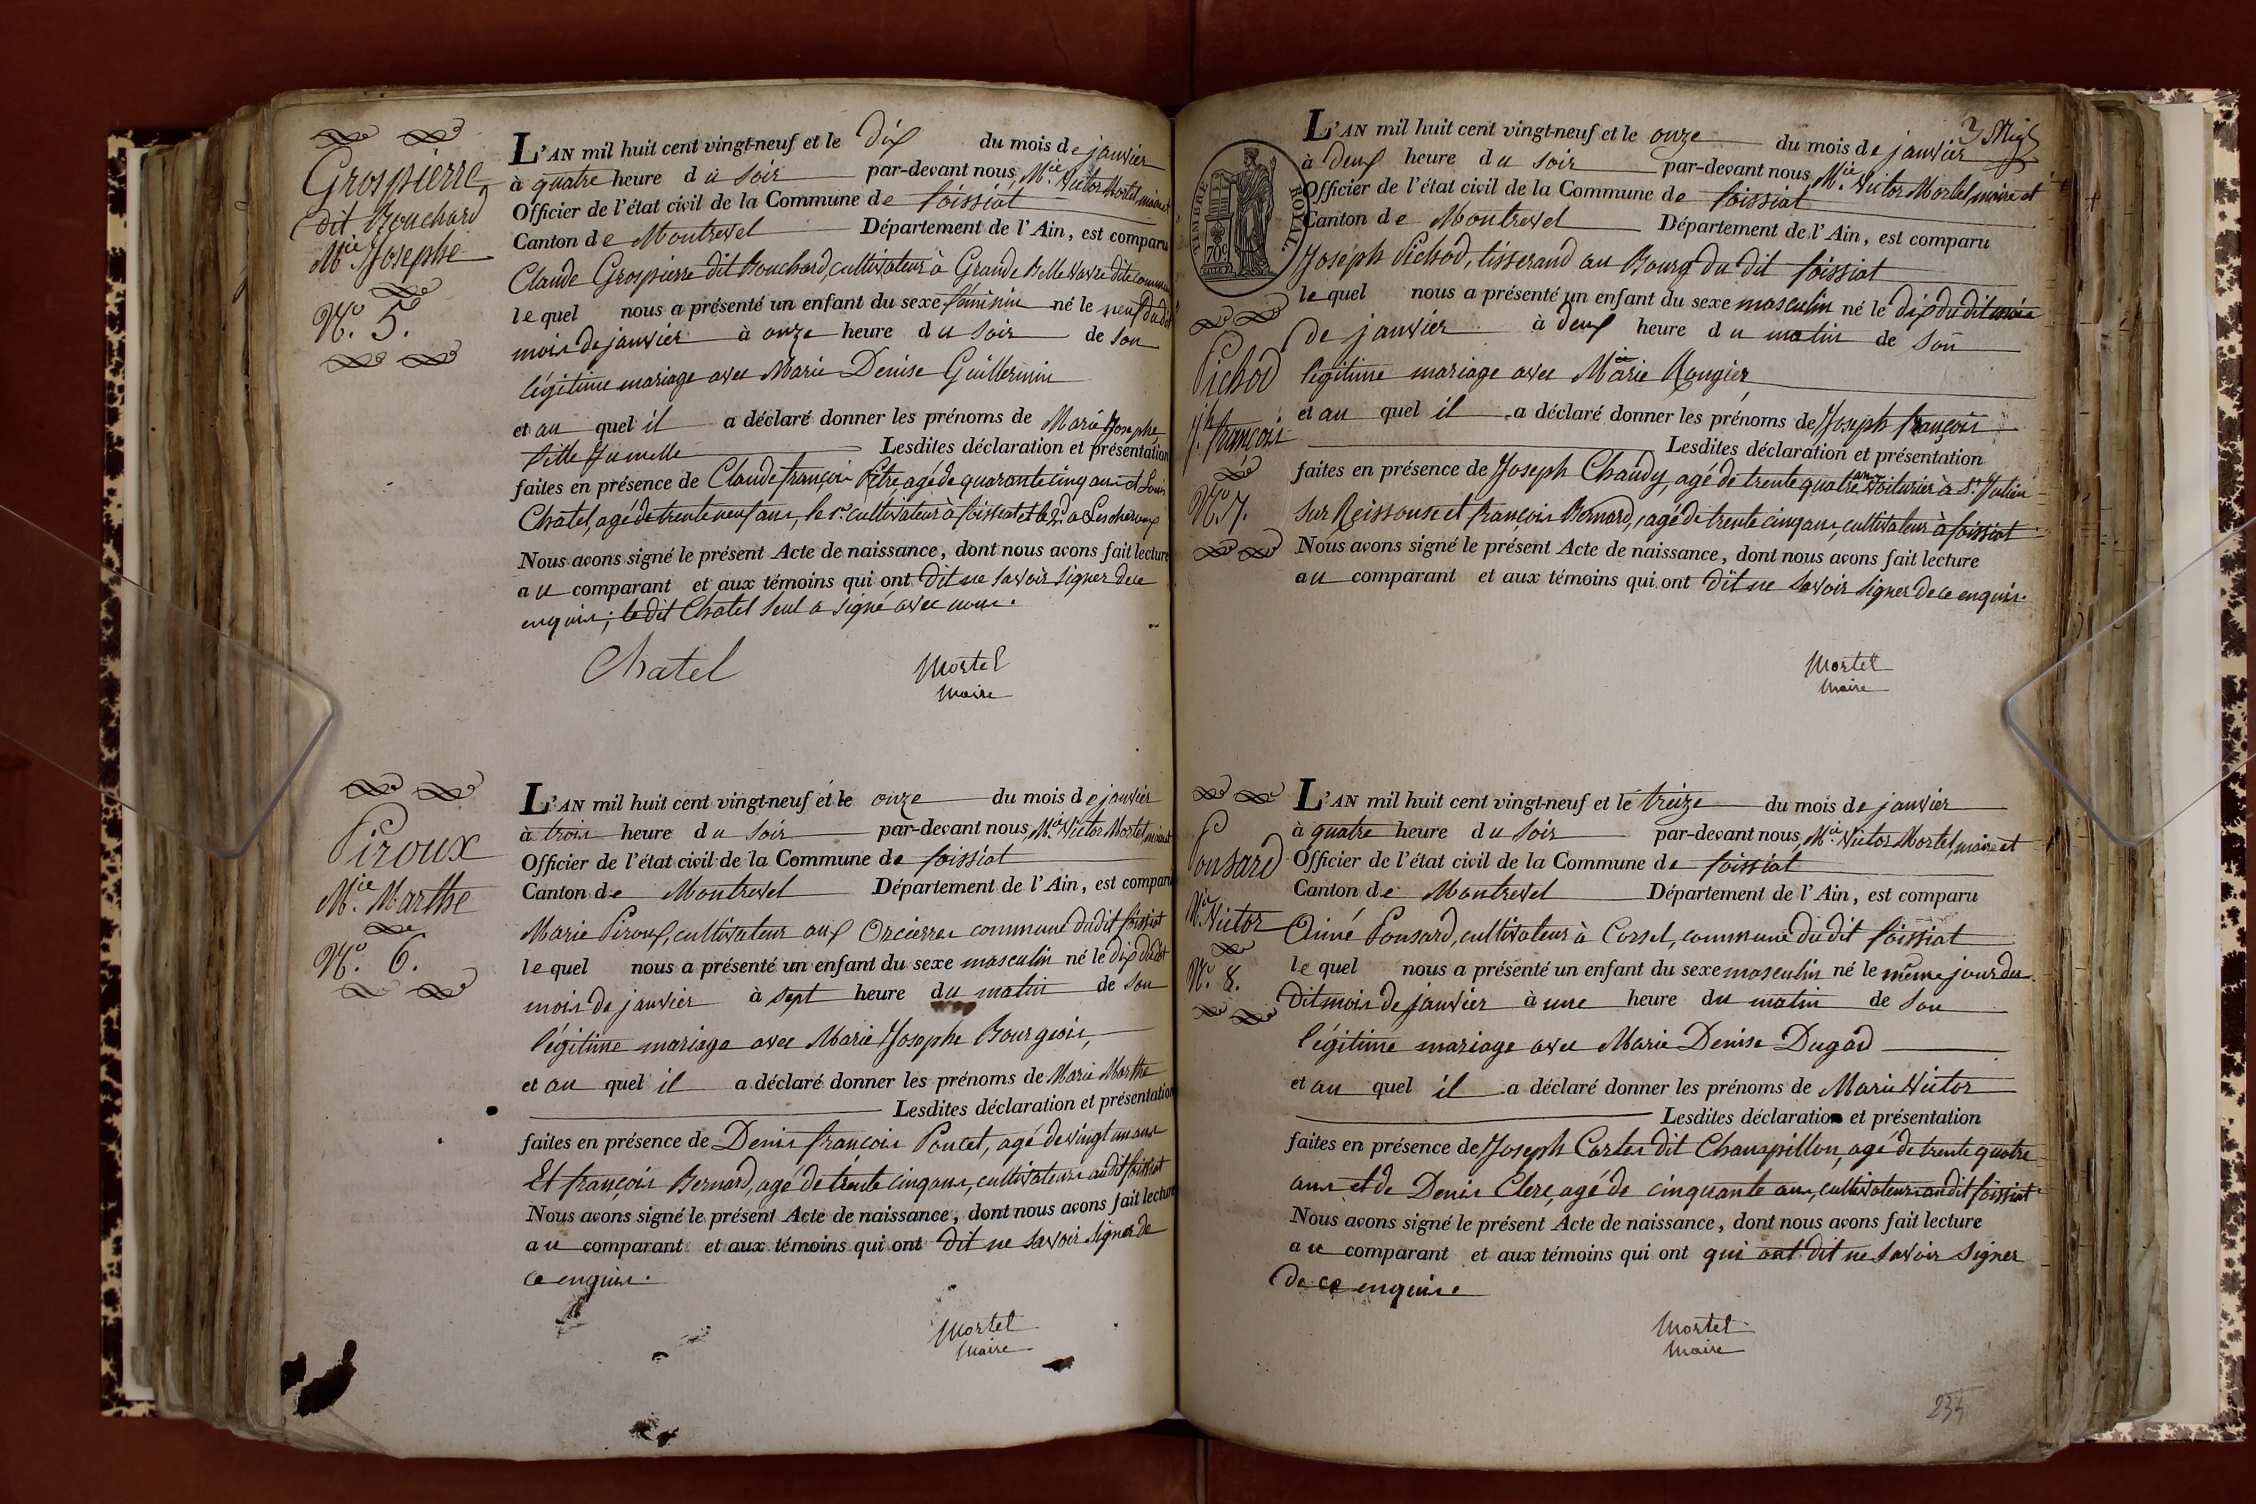 Grospierre
dit Bouchard
Mie. Josephe
No. 5.
L'AN mil huit cent vingt-neuf et le dix du mois de janvier
à quatre heure du soir par-devant nous, Mie. Victor Mortel, maire et
Officier de l'état civil de la Commune de foissiat
Canton de Montrevel Département de l'Ain, est comparu
Claude Grospierre dit Bouchard, cultivateur à Grande Bellevavre dite commune
lequel nous a présenté un enfant du sexe féminin né le neuf du dit
mois de janvier à onze heure du soir de son
légitime mariage avec Marie Denise Guillermin
et au quel il a déclaré donner les prénoms de Marie Josephe,
fille jumelle Lesdites déclaration et présentation
faites en présence de Claude françois Pitre agé de quarante cinq ans et Louis
Chatel, agé de trente neuf ans, le 1er. cultivateur à foissiat et le 2d. a Lescheroux
Nous avons signé le présent Acte de naissance, dont nous avons fait lecture
au comparant et aux témoins qui ont dit ne savoir signer de ce
enquis; le dit Chatel seul a signé avec nous.
Chatel Mortel
Maire
Piroux
Mie. Marthe
No. 6.
L'AN mil huit cent vingt-neuf et le onze du mois de janvier
à trois heure du soir par-devant nous, Mie. Victor Mortel, maire et
Officier de l'état civil de la Commune de foissiat
Canton de Montrevel Département de l'Ain, est comparu
Marie Piroux, cultivateur aux Orcières commune dudit foissiat
lequel nous a présenté un enfant du sexe masculin né le dix du dit
mois de janvier à sept heure du matin de son
légitime mariage avec Marie Josephe Bourgeois,
et au quel il a déclaré donner les prénoms de Marie Marthe
Lesdites déclaration et présentation
faites en présence de Denis françois Poncet, agé de vingt un ans
Et françois Bernard, agé de trente cinq ans, cultivateurs audit foissiat
Nous avons signé le présent Acte de naissance, dont nous avons fait lecture
au comparant et aux témoins qui ont dit ne savoir signer de
ce enquis.
Mortel
Maire
3
TIMBRE ROYAL
70c
Pichod
Jh. françois
No. 7.
L'AN mil huit cent vingt-neuf et le onze du mois de janvier
à deux heure du soir par-devant nous, Mie. Victor Mortel, maire et
Officier de l'état civil de la Commune de foissiat
Canton de Montrevel Département de l'Ain, est comparu
Joseph Pichod, tisserand au Bourg du dit foissiat
lequel nous a présenté un enfant du sexe masculin né le dix du dit mois
de janvier à deux heure du matin de son
légitime mariage avec Marie Rongier
et au quel il a déclaré donner les prénoms de Joseph françois
Lesdites déclaration et présentation
faites en présence de Joseph Chaudy, agé de trente quatre ans voiturier à St. Julien
sur Reissouse et françois Bernard, agé de trente cinq ans, cultivateur à foissiat
Nous avons signé le présent Acte de naissance, dont nous avons fait lecture
au comparant et aux témoins qui ont dit ne savoir signer de ce enquis.
Mortel
Maire
Ponsard
Mie. Victor
No. 8.
L'AN mil huit cent vingt-neuf et le treize du mois de janvier
à quatre heure du soir par-devant nous, Mie. Victor Mortel, maire et
Officier de l'état civil de la Commune de foissiat
Canton de Montrevel Département de l'Ain, est comparu
Aimé Ponsard, cultivateur à Corsel, commune du dit foissiat
lequel nous a présenté un enfant du sexe masculin né le même jour du
dit mois de janvier à une heure du matin de son
légitime mariage avec Marie Denise Dugad
et au quel il a déclaré donner les prénoms de Marie Victor
Lesdites déclaration et présentation
faites en présence de Joseph Carles dit Champillon, agé de trente quatre
ans et de Denis Clerc, agé de cinquante ans, cultivateurs audit foissiat
Nous avons signé le présent Acte de naissance, dont nous avons fait lecture
au comparant et aux témoins qui ont qui ont dit ne savoir signer
de ce enquis.
Mortel
Maire